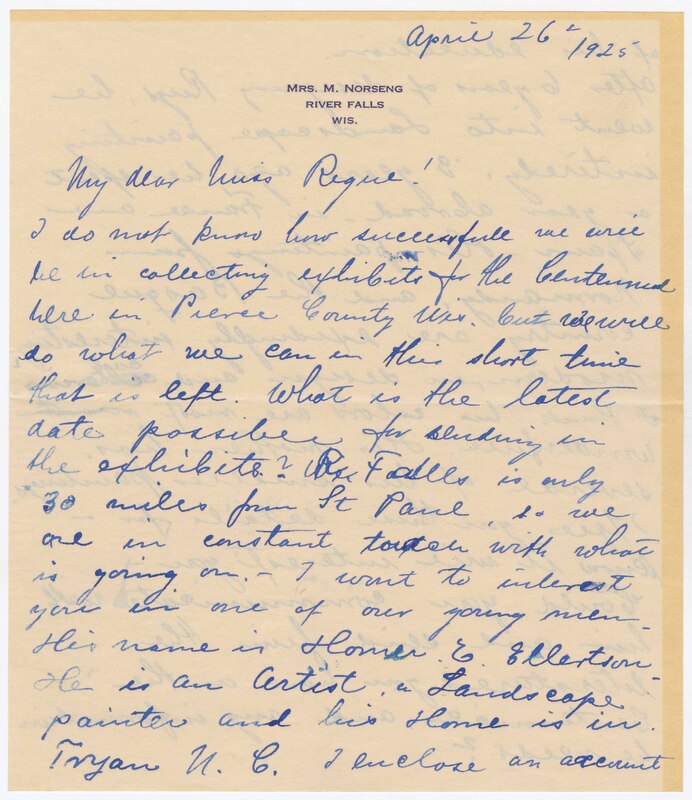 April 26" 1925
MRS. M. NORSENG
RIVER FALLS
WIS.
My dear Miss Reque!
I do not know how successfull we will
be in collecting exhibits for the Centennial
here in Pierce County Wis. but we will
do what we can in this short time
that is left. What is the latest
date possible for sending in
the exhibits? Riv Falls is only
30 miles from St Paul, so we
are in constant touch with what
is going on. - I want to interest
you in one of our young men
His name is Homer E. Ellertson
He is an Artist, a Landscape
painter and his Home is in
Tryan N. C. I enclose an account